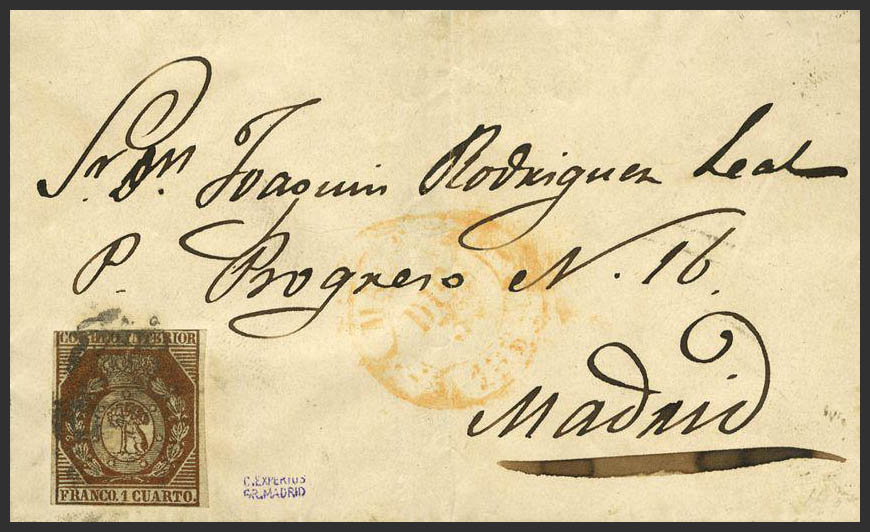 Sr. Dn. Joaquin Rodriguez Leal
P. Progreso N. 16.
Madrid
CORREO INTERIOR
FRANCO. 1 CUARTO.
C.EXPERTOS
GR.MADRID